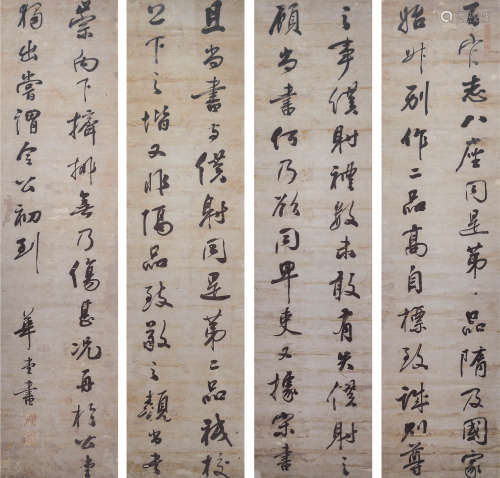 百官志八座同是第品隋及國家
始升別作二品高自標致誠則尊
之事僕射禮數未敢有失僕射之
顧尚書何乃欲同卑吏又據宋書
且尚書與僕射同是第二品祇校
上下之階又非隔品致敬之類尚書
崇向下擠排無乃傷甚況再於公堂
獨出嘗謂令公初到
華書